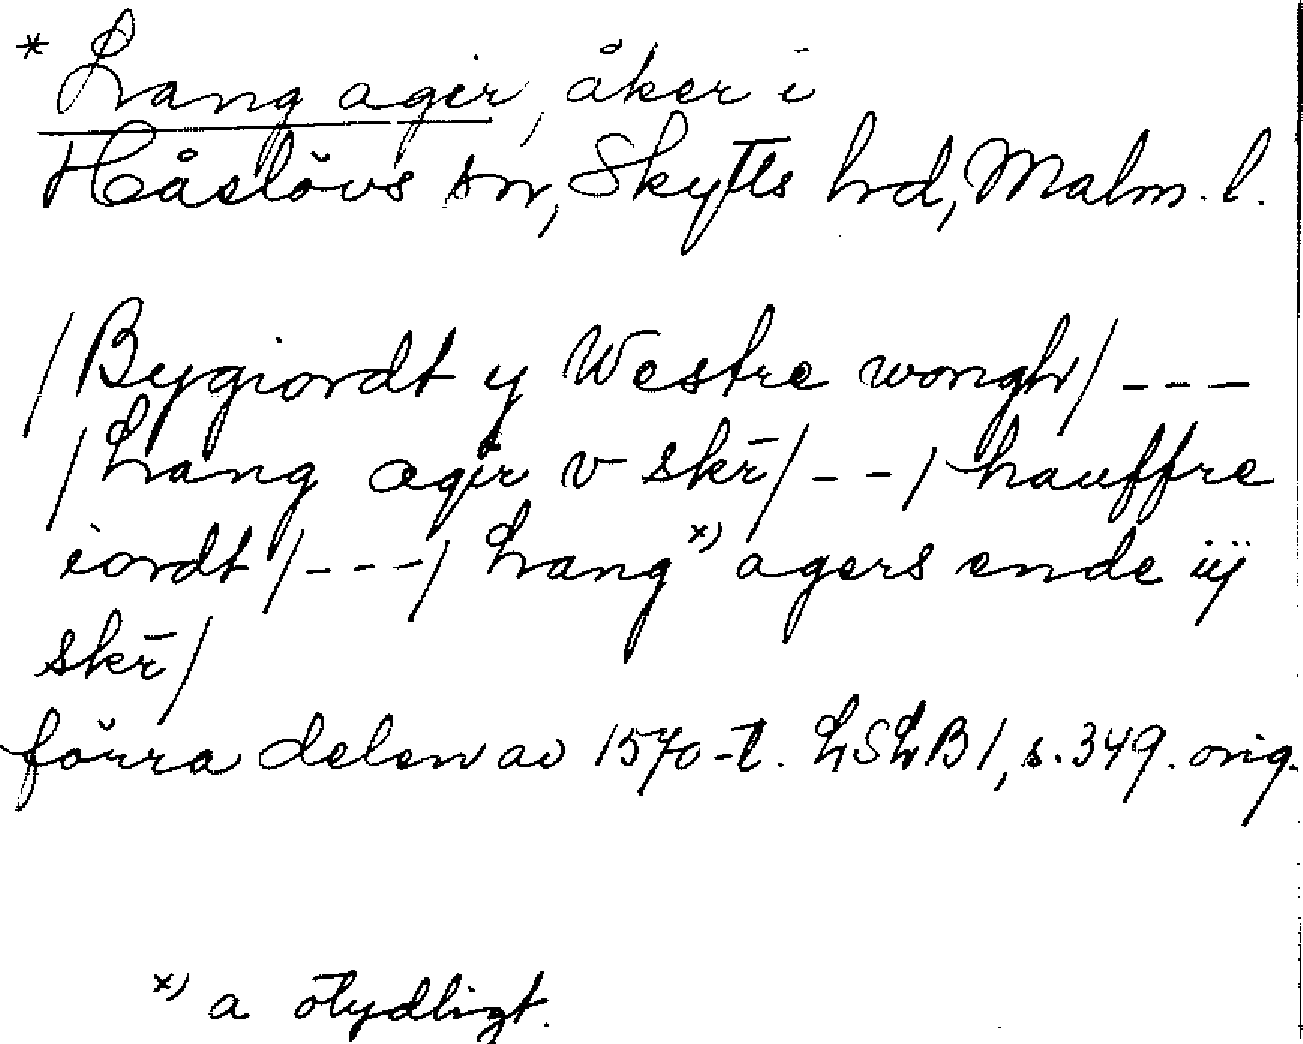 * Lang agir, åker i
Håslövs sn, Skytts hrd, Malm. l.
/Bygiordt y Westre wongh/ - - -
/Lang agir v skr̄/ - - / hauffre
iordt /- - -/ Lang x) agers ende iij
skr̄/
förra delen av 1570-t. LSLB1, s. 349. orig.
x) a otydligt.